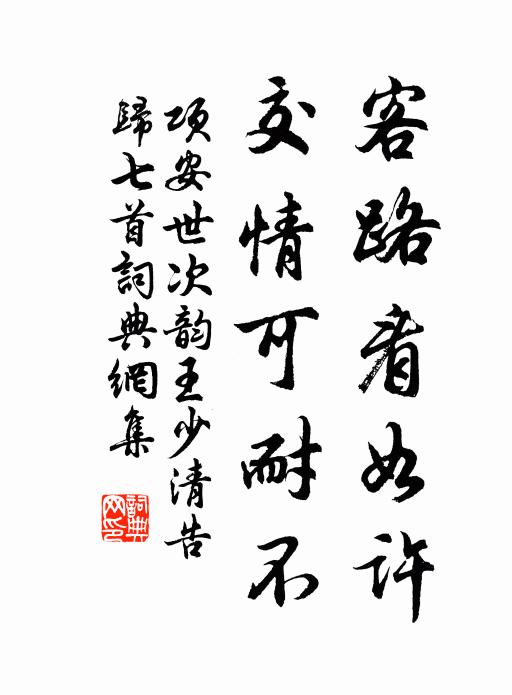 客路看如許
交情可耐不
項安世次韵王少清告
歸七首詞典網集
詞典
网印